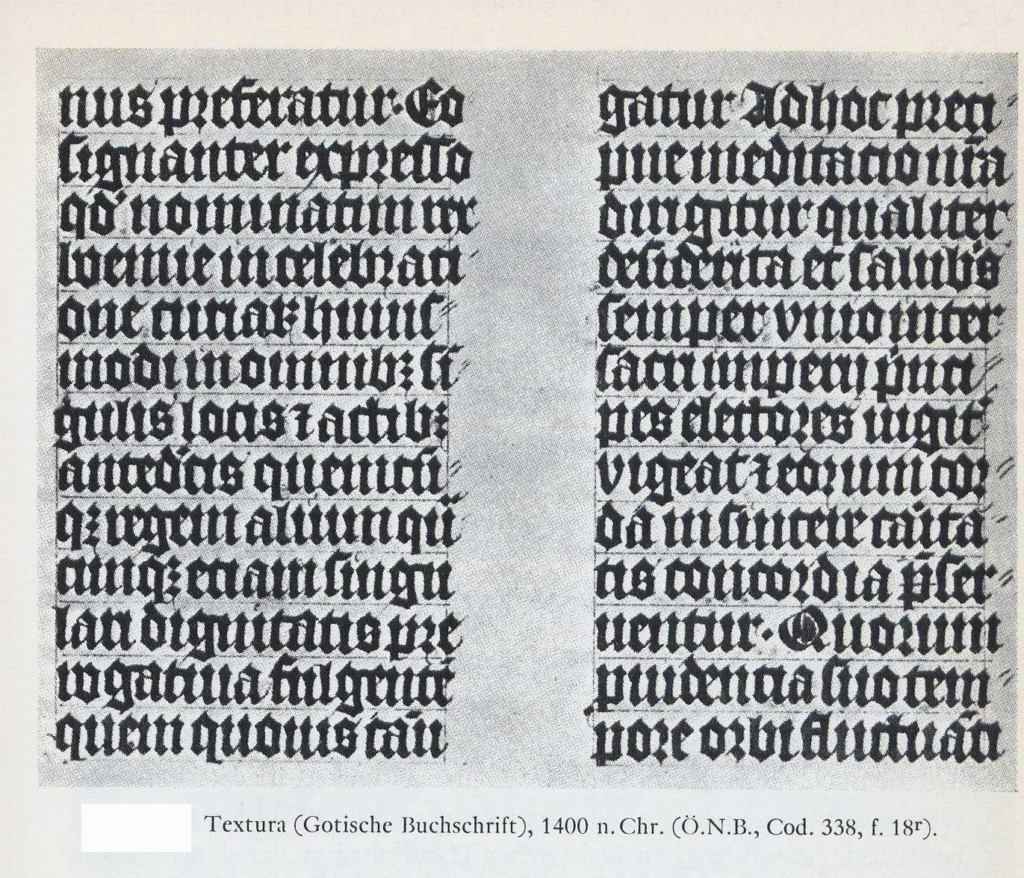 nus preferatur · Eo
signanter expresso
qd' nominatim rex
boemie in celebrati
one curiaꝝ huius
modi in omnibꝫ si
gulis locis ⁊ actibꝫ
anted'cis quemcū
qꝫ regem alium qua
cunqꝫ etiam singu
lari dignitatis pre
rogatiua fulgente
quem quouis cau
gatur Ad hoc preci
pue meditacio nr̄a
dirigitur qualiter
desiderata et salub's
semper vnio inter
sacri imperij pͥnci
pes electores iugit'
vigeat ⁊ eorum cor
da in sincere caͥta
tis concordia p̱ser
uentur · Quorum
prudencia suo tem
pore orbi fluctuāti
Textura (Gotische Buchschrift), 1400 n. Chr. (Ö.N.B., Cod. 338, f. 18ʳ).